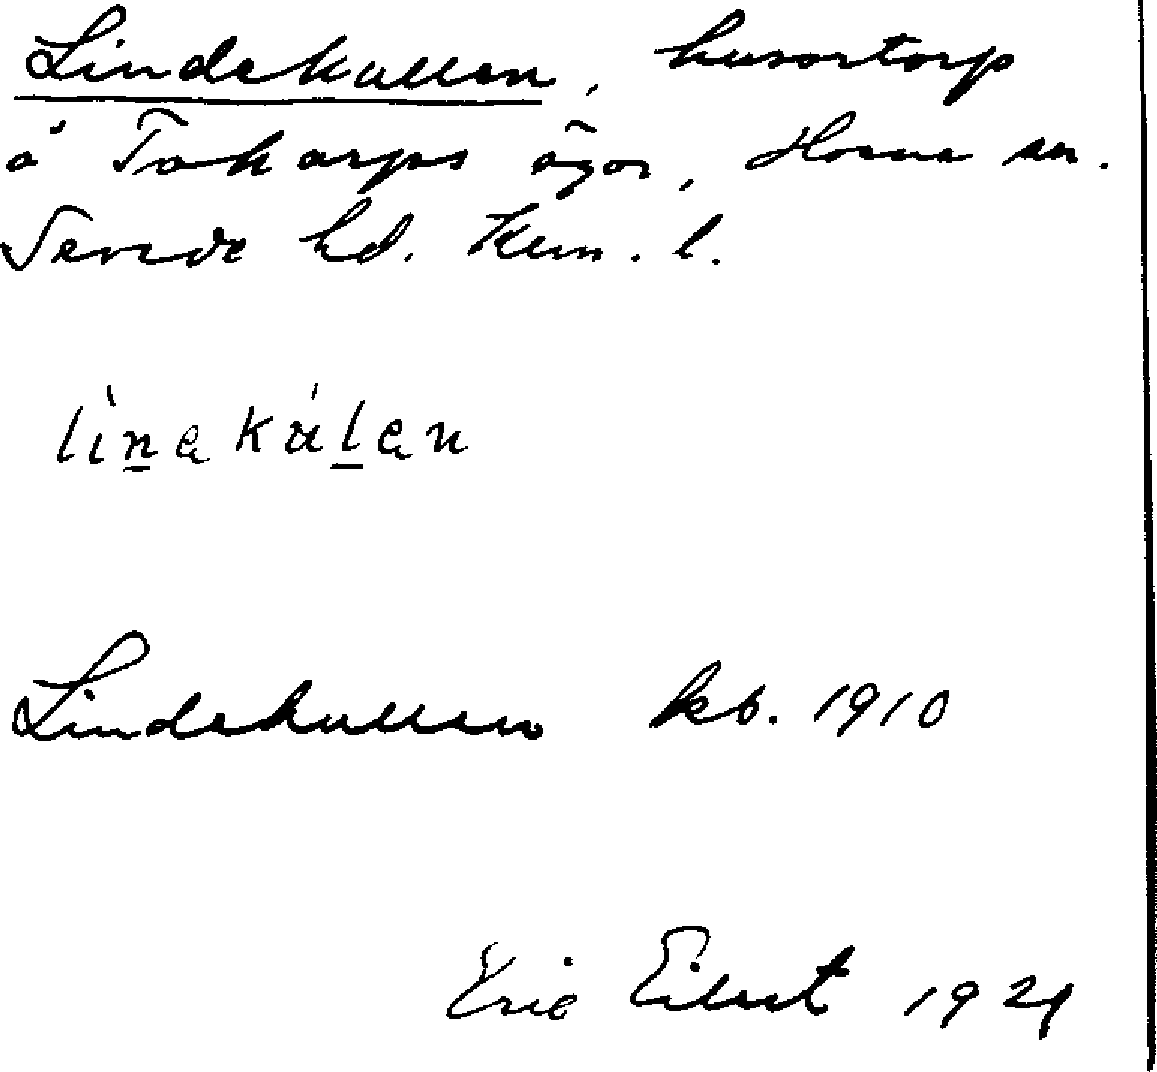 Lindekullen, husartorp
å Tokarps ägor, Hvena sn.
Sevede hd. Klm. l.
lìn̲ə kúl̲ən
Lindekullen kb. 1910
Eric Eilert 1921